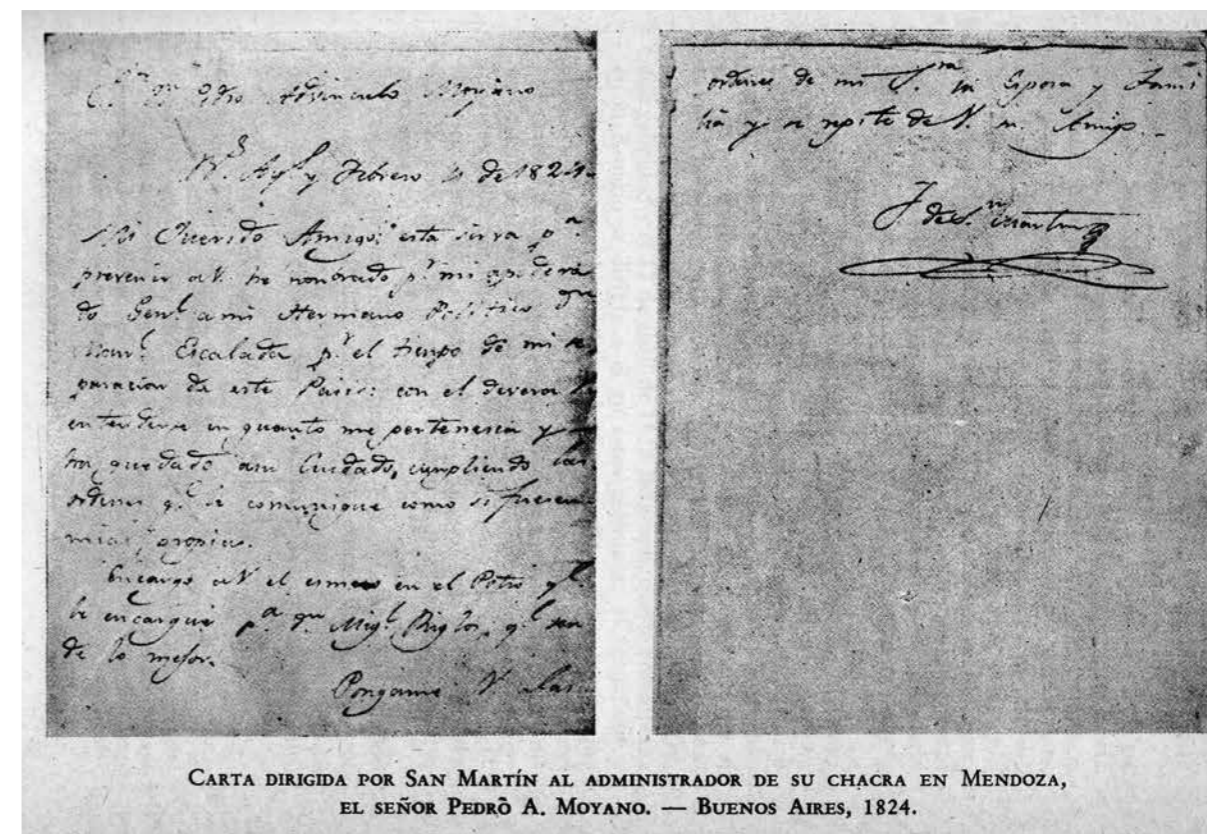 Sr. Dn. Pedro Advincula Moyano
Bs. Ays. y Febrero de 1824
Mi Querido Amigo: esta sirva pa.
prevenir a V. he nonvrado pr. mi apodera
do Genl. a mi Hermano Politico Dn.
Manl. Escalada pr. el tiempo de mi se
paracion de este Pais: con el devera
entenderse en quanto me pertenesca y
ha quedado a su Cuidado, cumpliendo las
ordenes qe. le comunique como si fuesen
mias propias.
Encargo a V. el esmero en el Potro qe.
le encargué pa. Dn. Migl. Riglos, qe. sea
de lo mejor.
Pongame V. a las
ordenes de mi Sra. su Esposa y Fami
lia y se repite de V. su Amigo.
J. de Sn. Martin
CARTA DIRIGIDA POR SAN MARTÍN AL ADMINISTRADOR DE SU CHACRA EN MENDOZA,
EL SEÑOR PEDRO A. MOYANO. — BUENOS AIRES, 1824.